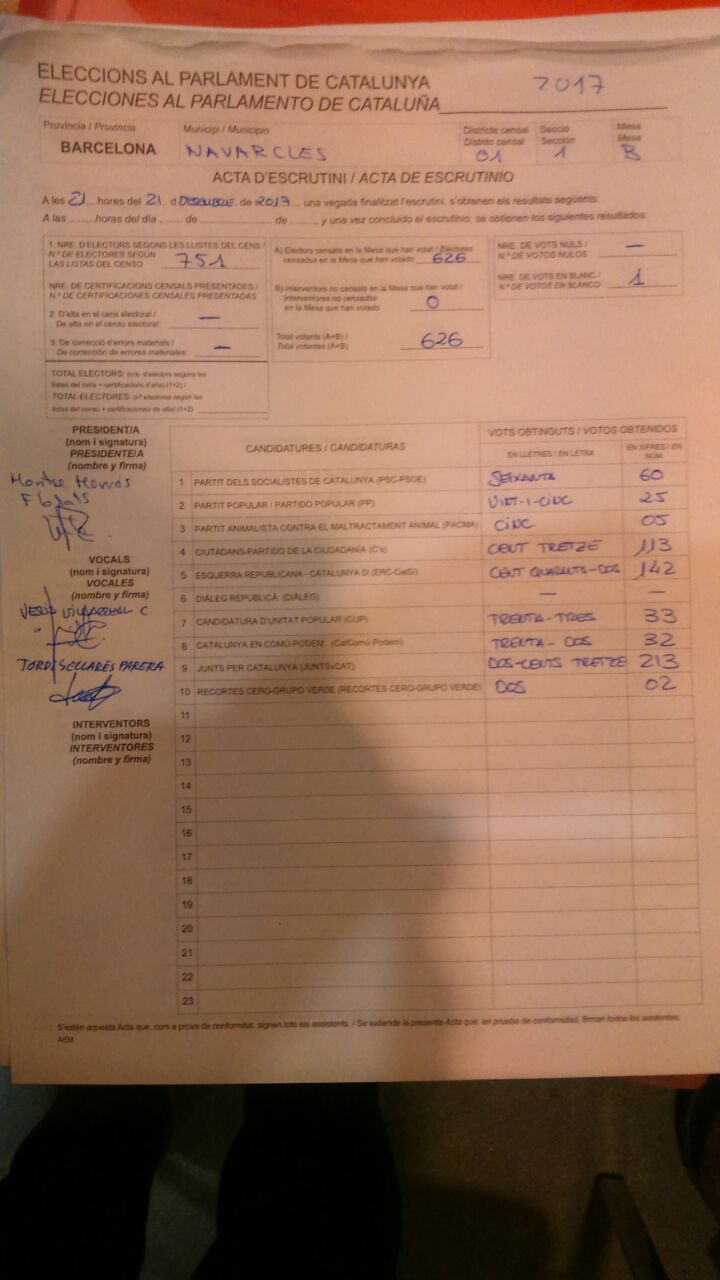 ELECCIONS AL PARLAMENT DE CATALUNYA
ELECCIONES AL PARLAMENTO DE CATALUÑA 2017
Província / Provincia Municipi / Municipio Districte censal Secció Mesa
Distrito censal Sección Mesa
BARCELONA NAVARCLES 01 1 B
ACTA D'ESCRUTINI / ACTA DE ESCRUTINIO
A les 21 hores del 21 d DESEMBRE de 2017, una vegada finalitzat l'escrutini, s'obtenen els resultats següents:
A las ........ horas del día ....... de .................... de ......., y una vez concluido el escrutinio, se obtienen los siguientes resultados:
1. NRE. D'ELECTORS SEGONS LES LLISTES DEL CENS /
N.º DE ELECTORES SEGÚN
LAS LISTAS DEL CENSO 751
NRE. DE CERTIFICACIONS CENSALS PRESENTADES /
N.º DE CERTIFICACIONES CENSALES PRESENTADAS
2. D'alta en el cens electoral /
De alta en el censo electoral: —
3. De correcció d'errors materials /
De corrección de errores materiales: —
TOTAL ELECTORS: (nre. d'electors segons les
llistes del cens + certificacions d'alta) (1+2) /
TOTAL ELECTORES: (nº electores según las
listas del censo + certificaciones de alta) (1+2)
A) Electors censats en la Mesa que han votat / Electores
censados en la Mesa que han votado 626
B) Interventors no censats en la Mesa que han votat /
Interventores no censados
en la Mesa que han votado 0
Total votants (A+B) /
Total votantes (A+B) 626
NRE. DE VOTS NULS /
N.º DE VOTOS NULOS —
NRE. DE VOTS EN BLANC /
N.º DE VOTOS EN BLANCO 1
PRESIDENT/A
(nom i signatura)
PRESIDENTE/A
(nombre y firma)
Montse
VOCALS
(nom i signatura)
VOCALES
(nombre y firma)
JORDI SELLARÉS PARERA
INTERVENTORS
(nom i signatura)
INTERVENTORES
(nombre y firma)
CANDIDATURES / CANDIDATURAS VOTS OBTINGUTS / VOTOS OBTENIDOS
EN LLETRES / EN LETRA EN XIFRES / EN NÚM.
1 PARTIT DELS SOCIALISTES DE CATALUNYA (PSC-PSOE) SEIXANTA 60
2 PARTIT POPULAR / PARTIDO POPULAR (PP) VINT-I-CINC 25
3 PARTIT ANIMALISTA CONTRA EL MALTRACTAMENT ANIMAL (PACMA) CINC 05
4 CIUTADANS-PARTIDO DE LA CIUDADANÍA (C's) CENT TRETZE 113
5 ESQUERRA REPUBLICANA - CATALUNYA SÍ (ERC-CatSí) CENT QUARANTA-DOS 142
6 DIÀLEG REPUBLICÀ (DIÀLEG) — —
7 CANDIDATURA D'UNITAT POPULAR (CUP) TRENTA-TRES 33
8 CATALUNYA EN COMÚ-PODEM (CatComú-Podem) TRENTA-DOS 32
9 JUNTS PER CATALUNYA (JUNTSxCAT) DOS-CENTS TRETZE 213
10 RECORTES CERO-GRUPO VERDE (RECORTES CERO-GRUPO VERDE) DOS 02
11
12
13
14
15
16
17
18
19
20
21
22
23
S'estén aquesta Acta que, com a prova de conformitat, signen tots els assistents. / Se extiende la presente Acta que, en prueba de conformidad, firman todos los asistentes.
AEM